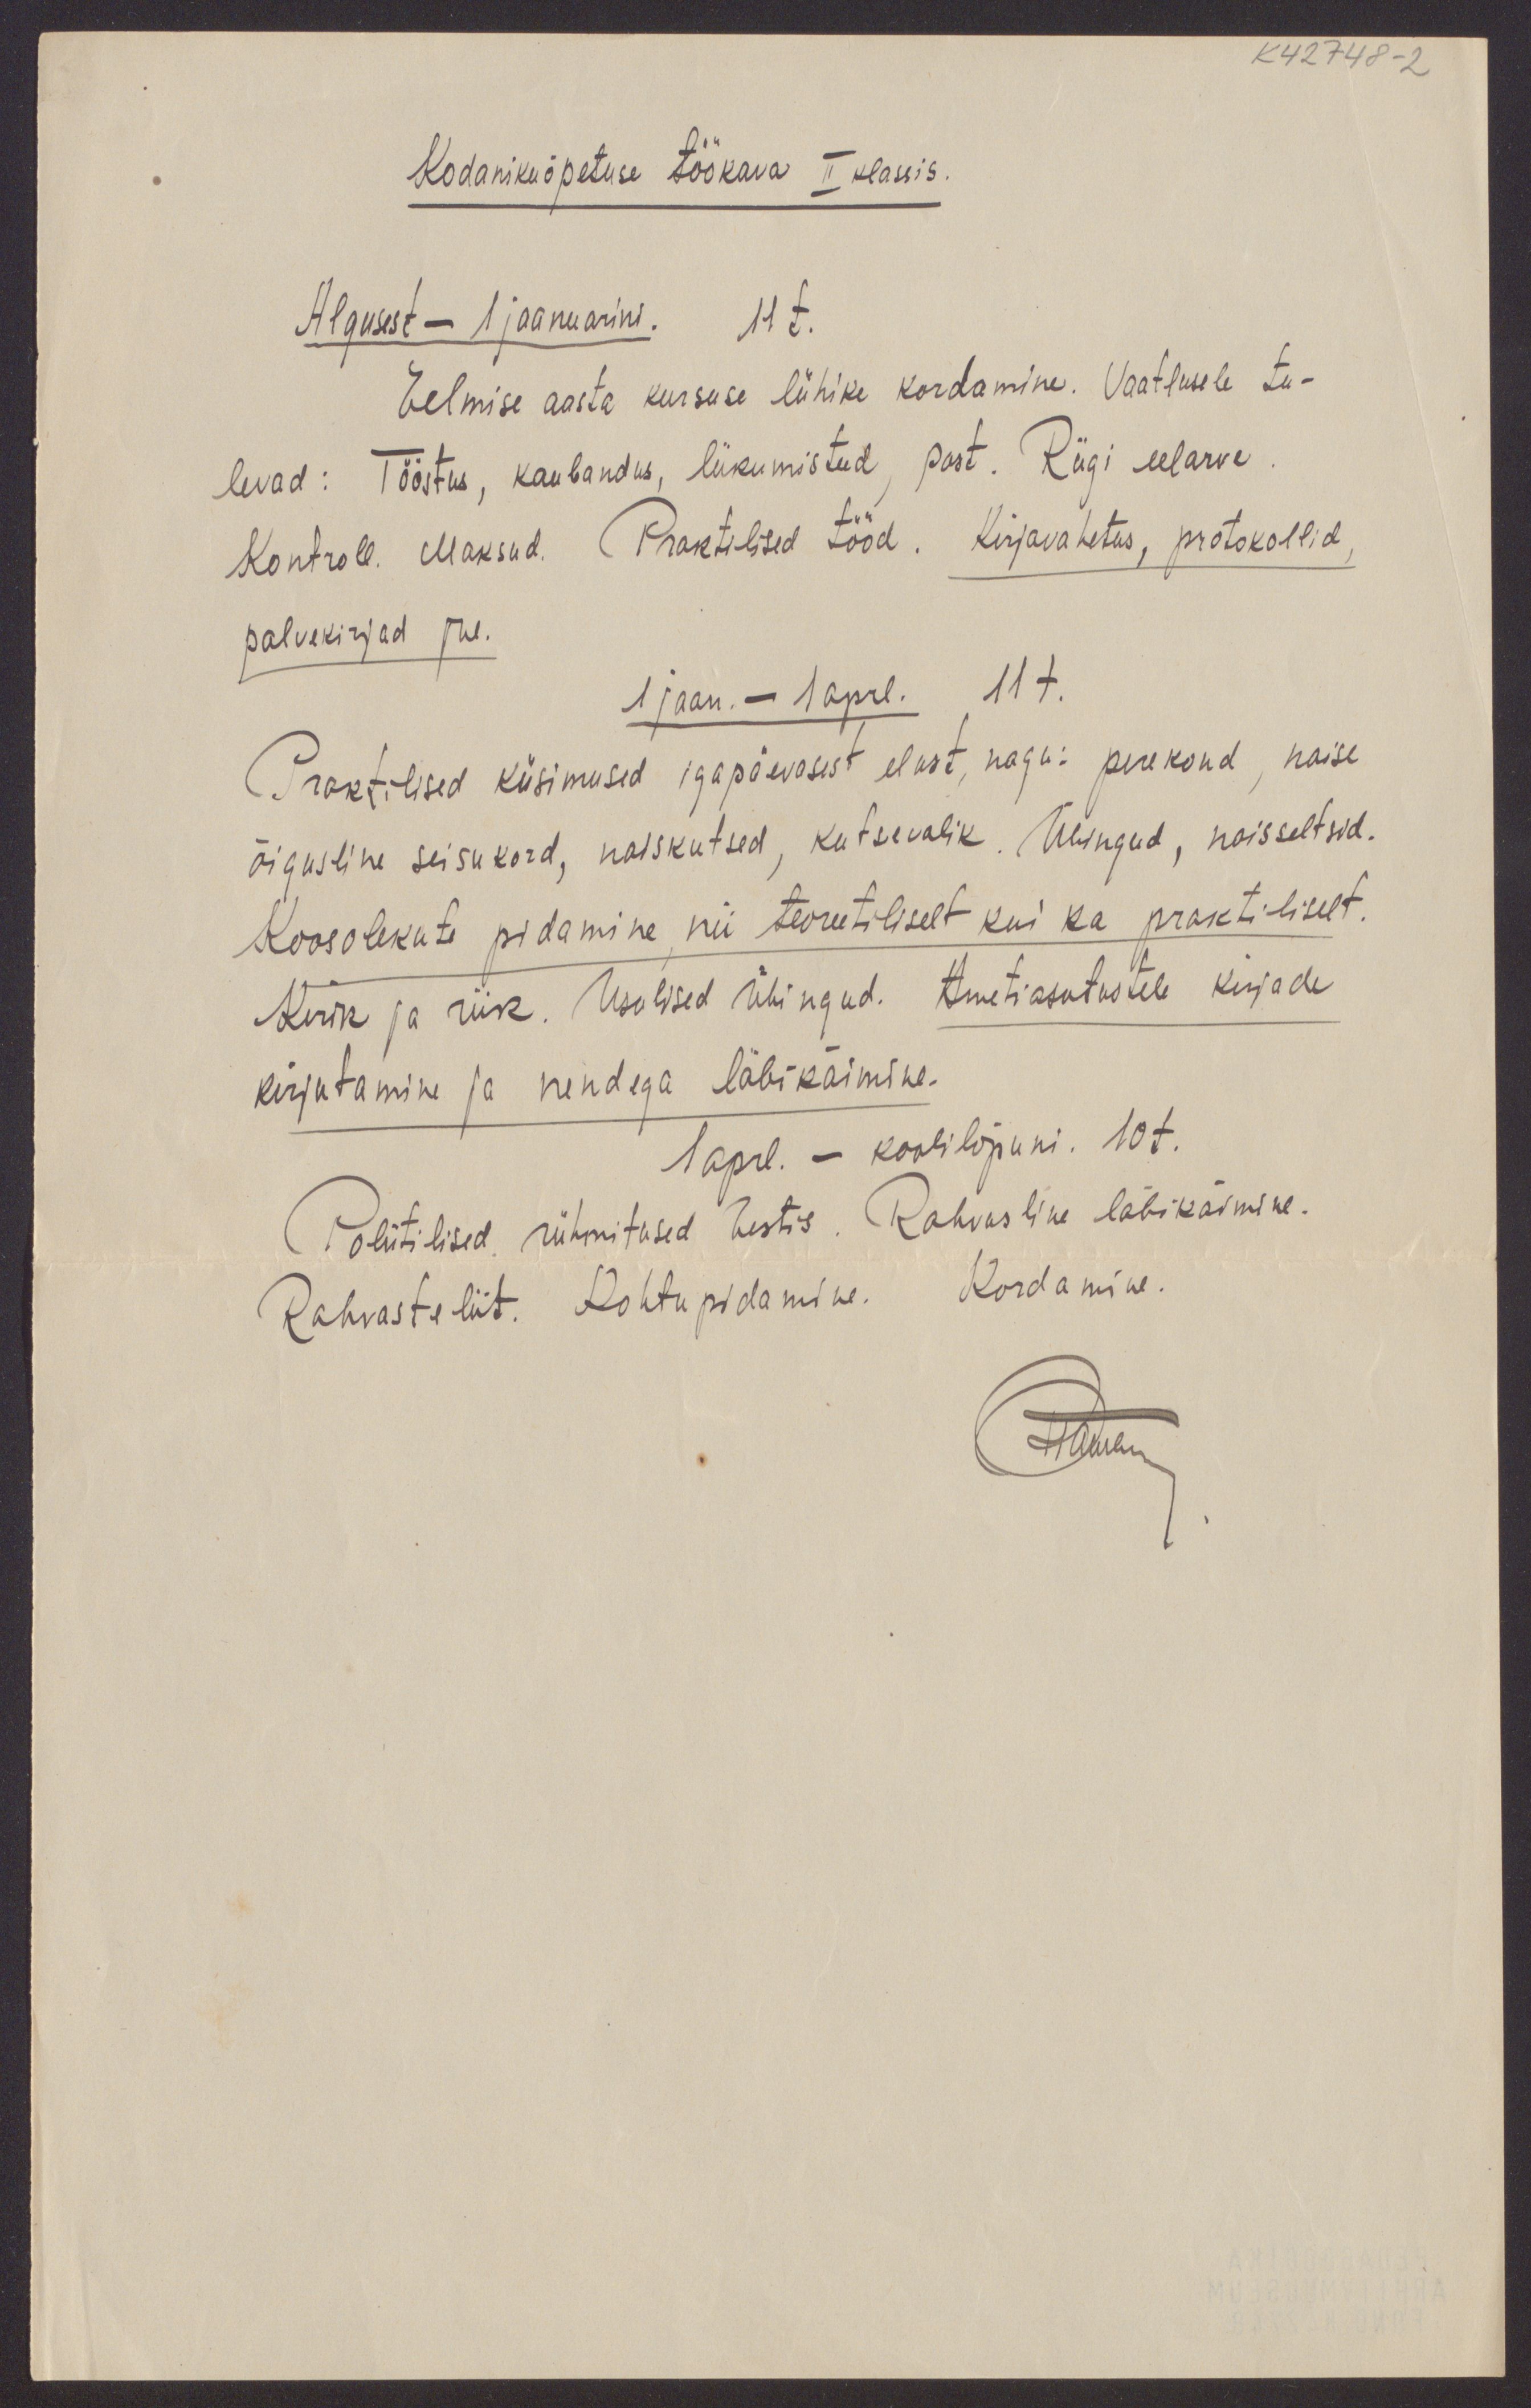 K42748-2
Kodanikuõpetuse töökava II klassis.
Algusest – 1 jaanuarini. 11 t.
Eelmise aasta kursuse lühike kordamine. Vaatlusele tu-
levad: Tööstus, kaubandus, liikumisteed, post. Riigi eelarve.
Kontroll. Maksud. Praktilised tööd. Kirjavahetus, protokollid,
palvekirjad jne.
1 jaan. – 1 aprl. 11 t.
Praktilised küsimused igapäevasest elust, nagu: perekond, naise
õigusline seisukord, naiskutsed, kutsevalik. Ühingud, naisseltsid.
Koosolekute pidamine, nii teoreetiliselt kui ka praktiliselt.
Kirik ja riik. Usulised ühingud. Ametiasutustele kirjade
kirjutamine ja nendega läbikäimine.
1 aprl. – koolilõpuni. 10 t.
Poliitilised rühmitused Eestis. Rahvusline läbikäimine.
Rahvasteliit. Kohtupidamine. Kordamine.